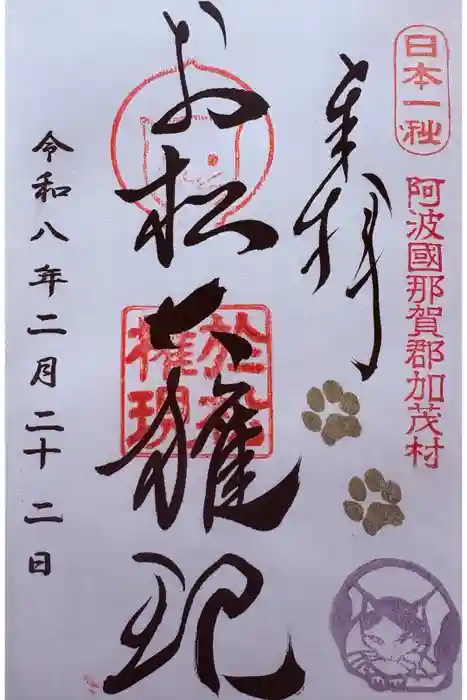 日本一社
阿波國那賀郡加茂村
奉拝
お松大權現
令和八年二月二十二日